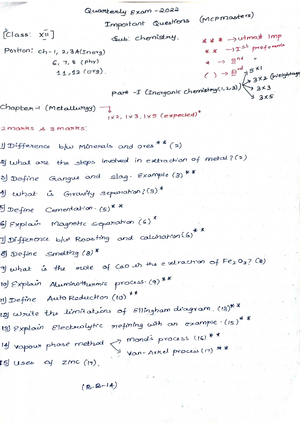 Quarterly Exam - 2022
Important Questions (Mcpmasters)
[Class: XII]
Sub: Chemistry.
* * * → utmost Imp
* * → Ist preference
* → 2nd "
( ) → 3rd "
Portion: Ch-1, 2, 3A (Inorg)
6, 7, 8 (Phy)
11, 12 (Org).
Part - I (Inorganic Chemistry (1,2,3)) → 5 x 1
3 x 2 (Weightage)
3 x 3
3 x 5
Chapter-1 (Metallurgy) → 1x2, 1x3, 1x5 (expected)*
2 marks & 3 marks:
1) Difference b/w Minerals and ores** (2)
2) What are the steps involved in extraction of metal? (2)
3) Define Gangue and slag. Example (3)***
4) What is Gravity separation? (3)*
5) Define Cementation. (5)**
6) Explain Magnetic separation (6)*
7) Difference b/w Roasting and calcination (6)**
8) Define Smelting (8)*
9) What is the role of CaO in the extraction of Fe2O3? (8)
10) Explain Aluminothermic process. (9)**
11) Define Auto Reduction (10)**
12) Write the limitations of Ellingham diagram. (13)**
13) Explain Electrolytic refining with an example. (15)**
14) Vapour phase method → Mond's process (16)**
→ Van-Arkel process (17)**
15) Uses of zinc (19).